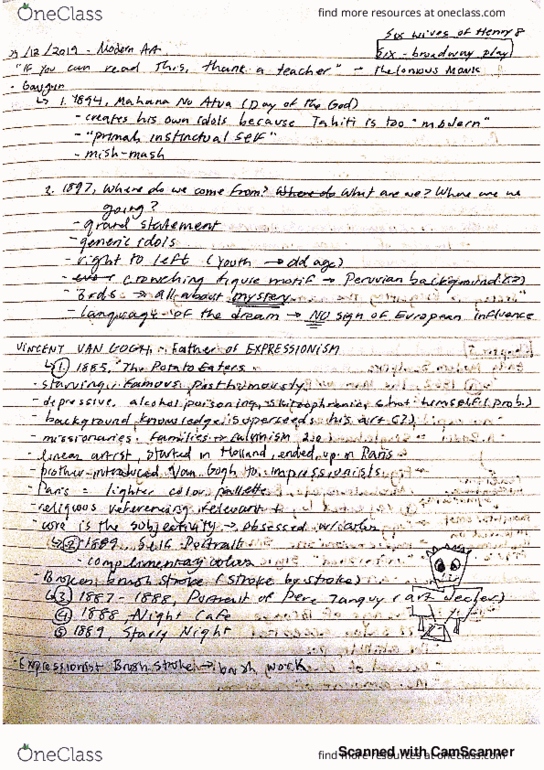 OneClass
find more resources at oneclass.com
Six wives of Henry 8
Six - broadway play
/12/2019 - Modern Art
"If you can read This, thank a teacher" - Thelonious Monk
- Gaugin
↳ 1. 1894, Mahana No Atua (Day of the God)
- creates his own idols because Tahiti is too "modern"
- "primal instinctual self"
- mish-mash
2. 1897, Where do we come from? Where do What are we? Where are we
going?
- grand statement
- generic idols
- right to left (youth → old age)
- crouching figure motif → Peruvian background (?)
- → all about mystery
- language of the dream → NO sign of European influence
VINCENT VAN GOGH - Father of EXPRESSIONISM
↳ ① 1885, The Potato Eaters
- starving, famous posthumously
- depressive, alcohol poisoning, schizophrenic, shot himself (prob.)
- background knowledge superseeds his art (?)
- missionaries families →
- linear artist, started in Holland, ended up in Paris
- brother introduced Van Gogh to impressionists
- Paris = lighter color pallette
- religious referencing relevant
- core is the subjectivity → obsessed w/ color
↳ ② 1889 Self Portrait
- complimentary colors
- Broken brush stroke (stroke by stroke)
↳ ③ 1887 - 1888, Portrait of Pere Tanguy (art dealer)
④ 1888 Night Cafe
⑤ 1889, Starry Night
- Expressionist Brush stroke → brush work
OneClass
find more resources at oneclass.com
Scanned with CamScanner